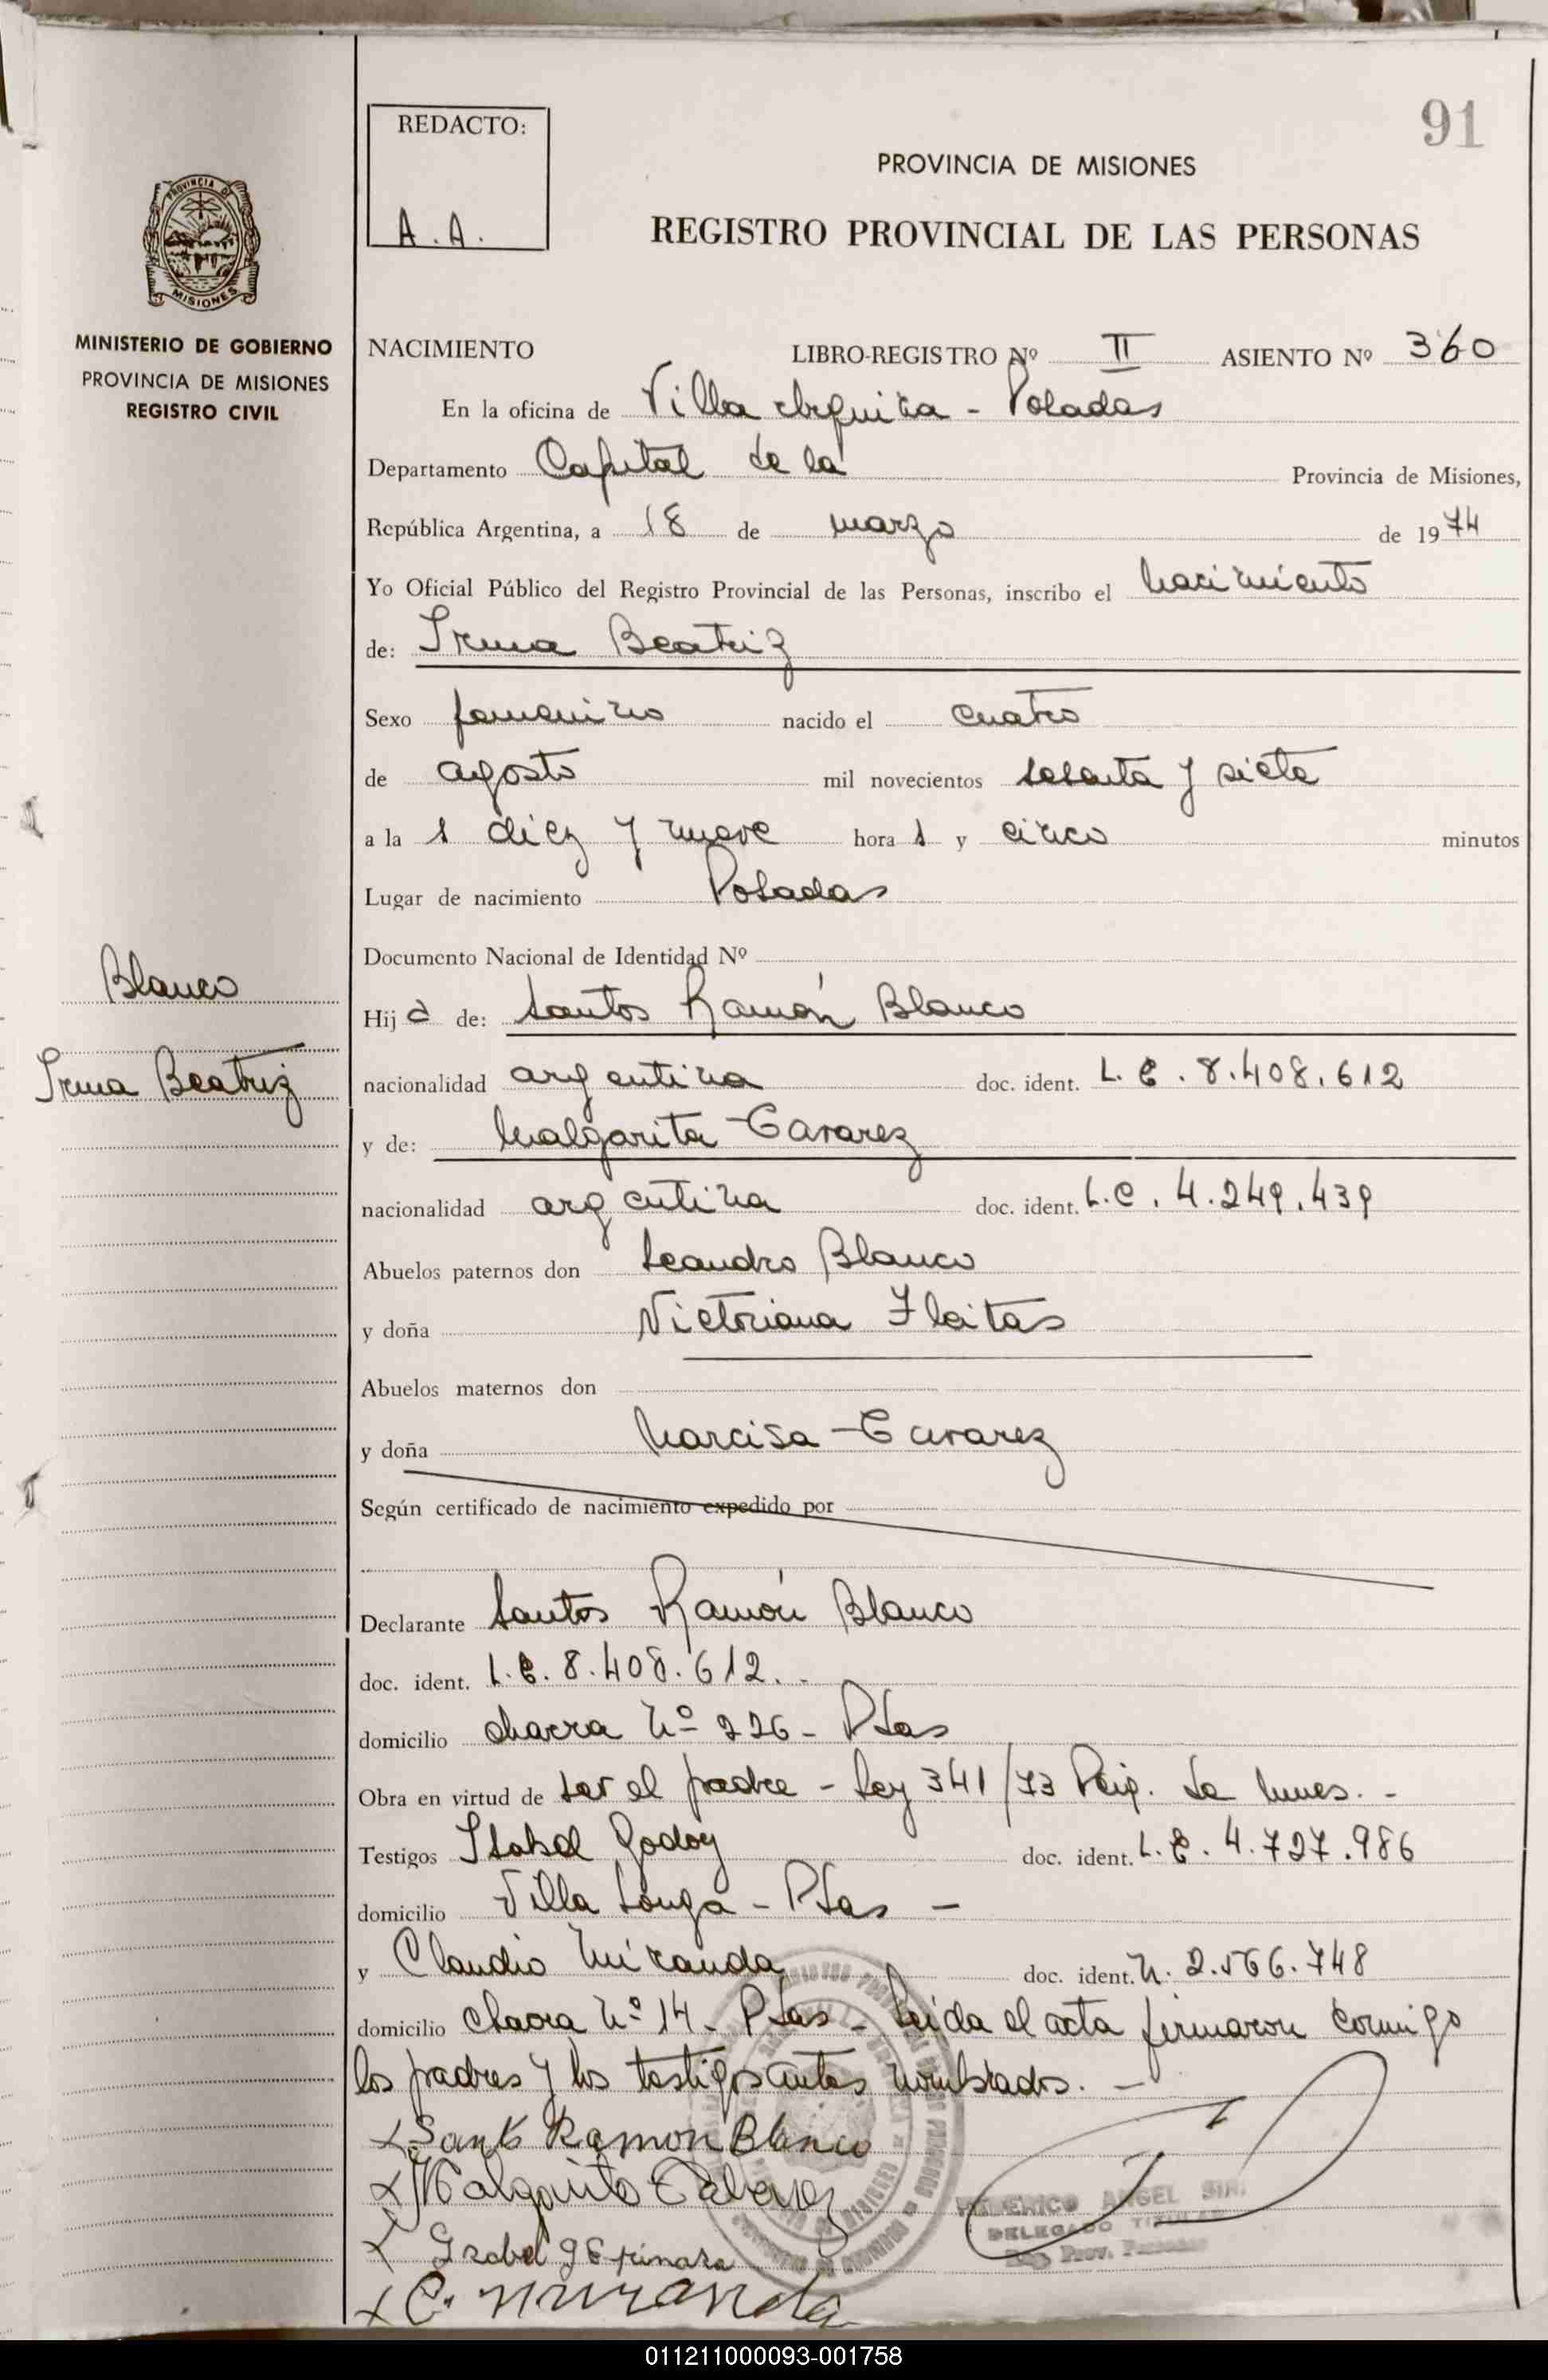 91
REDACTO:
A. A.
PROVINCIA DE MISIONES
REGISTRO PROVINCIAL DE LAS PERSONAS
PROVINCIA DE
MISIONES
MINISTERIO DE GOBIERNO
PROVINCIA DE MISIONES
REGISTRO CIVIL
NACIMIENTO LIBRO-REGISTRO Nº II ASIENTO Nº 360
En la oficina de Villa Urquiza - Posadas
Departamento Capital de la Provincia de Misiones,
República Argentina, a 18 de marzo de 1974
Yo Oficial Público del Registro Provincial de las Personas, inscribo el nacimiento
de: Irma Beatriz
Sexo femenino nacido el cuatro
de agosto mil novecientos sesenta y siete
a la s diez y nueve hora s y cinco minutos
Lugar de nacimiento Posadas
Documento Nacional de Identidad Nº
Blanco
Irma Beatriz
Hij a de: Santos Ramón Blanco
nacionalidad argentina doc. ident. L. E. 8.408.612
y de: Malgarita Cavarez
nacionalidad argentina doc. ident. L.C. 4.249.439
Abuelos paternos don Leandro Blanco
y doña Victoriana Fleitas
Abuelos maternos don
y doña Narcisa Cavarez
Según certificado de nacimiento expedido por
Declarante Santos Ramón Blanco
doc. ident. L. E. 8.408.612.
domicilio chacra Nº 226 - Pdas
Obra en virtud de ser el padre - Ley 341/73
Testigos Isabel Godoy doc. ident. L. E. 4.727.986
domicilio Villa Longa - Pdas -
y Claudio Miranda doc. ident. N. 2.566.748
domicilio Chacra Nº 14 - Pdas - Leída el acta firmaron conmigo
los padres y los testigos antes nombrados. -
x Santo Ramon Blanco
x Malgarita
x
x C. miranda
FEDERICO ANGEL
DELEGADO TITULAR
Reg. Prov. Personas
011211000093-001758